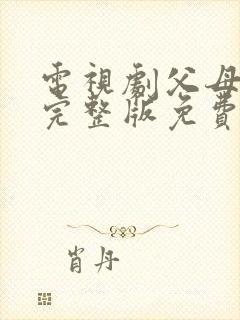 電視劇父母
完整版免費
肖丹